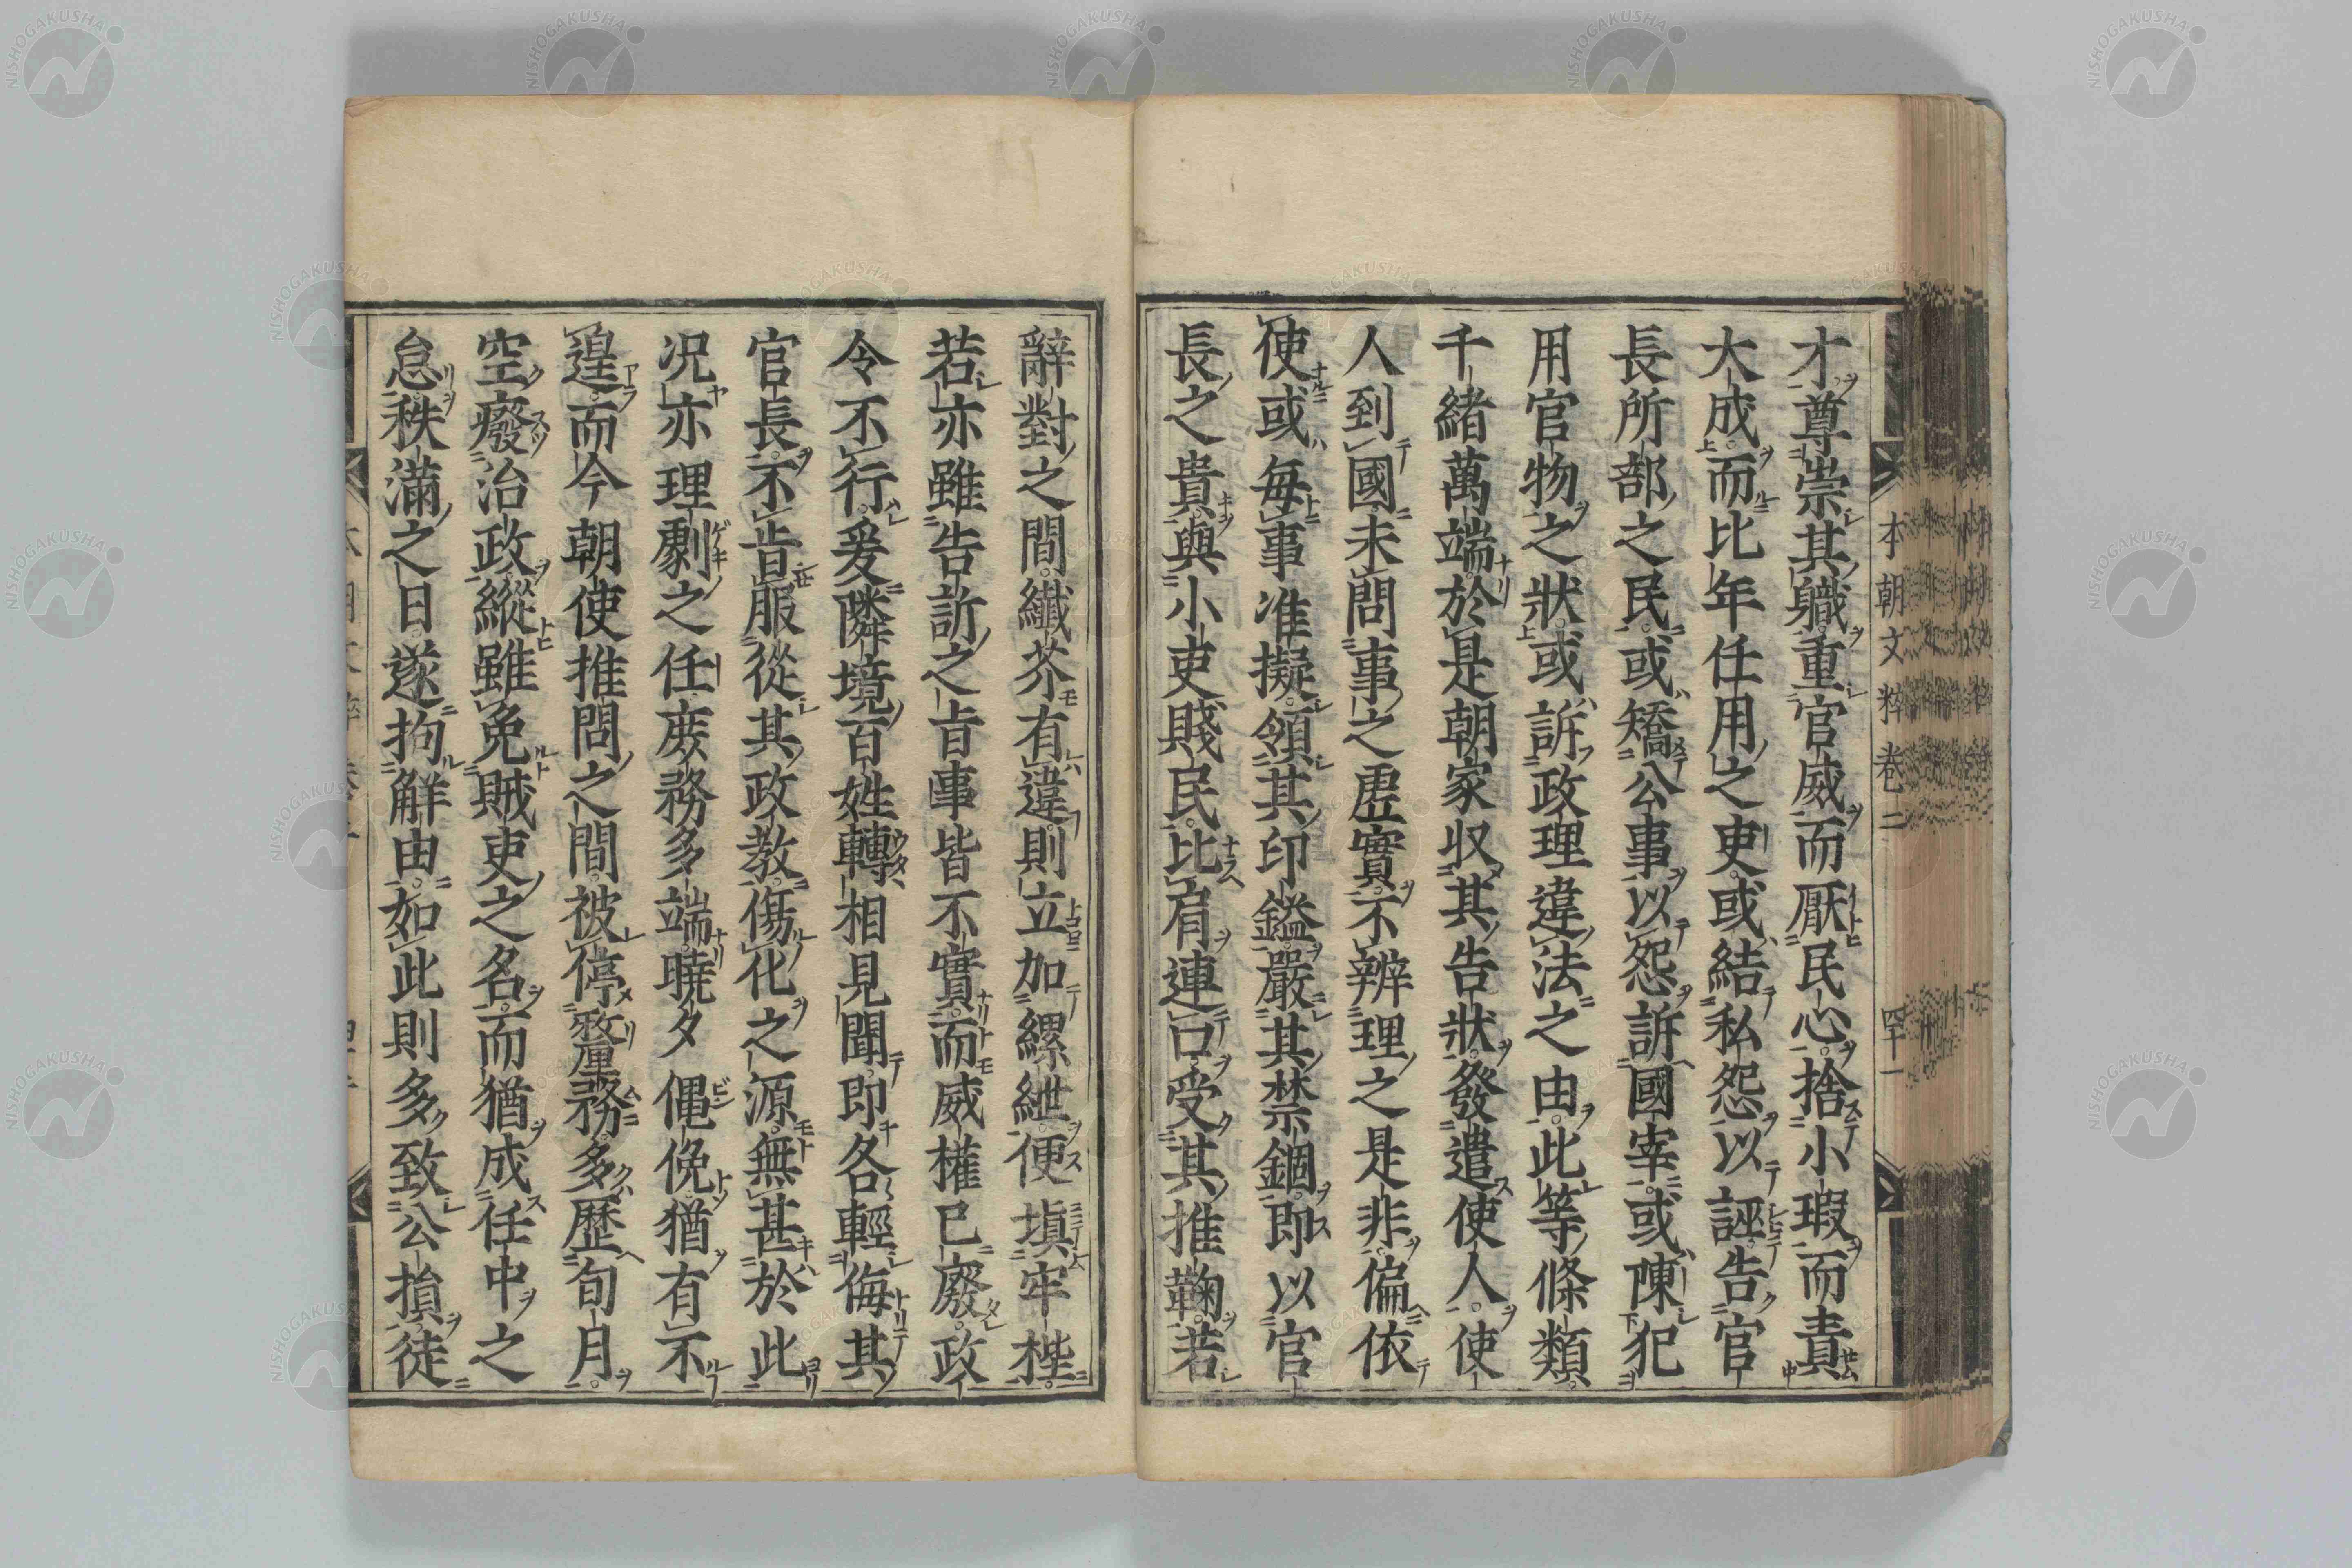 才尊崇其職重官威而厭民心捨小瑕而責
大成而比年任用之吏或結私怨以誣告官
長所部之民或矯公事以怨訴國宰或陳犯
用官物之狀或訴政理違法之由此等條類
千緒萬端於是朝家収其告狀發遣使人使
人到國未問事之虛實不辨理之是非偏依
使或毎事准擬領其印鎰嚴其禁錮即以官
長之貴與小吏賤民比肩連口受其推鞠若
本朝文粹卷二
四十一
辭對之間纖芥有違則立加縲紲便塡牢桎
若亦雖告訴之旨事皆不實而威權已廢政
令不行爰隣境百姓轉相見聞即各輕侮其
官長不肯服從其政教傷化之源無甚於此
况亦理劇之任庶務多端曉夕僶俛猶有不
遑而今朝使推問之間被停釐務多歷旬月
空癈治政縱雖免賊吏之名而猶成任中之
怠秩滿之日遂拘解由如此則多致公損徒